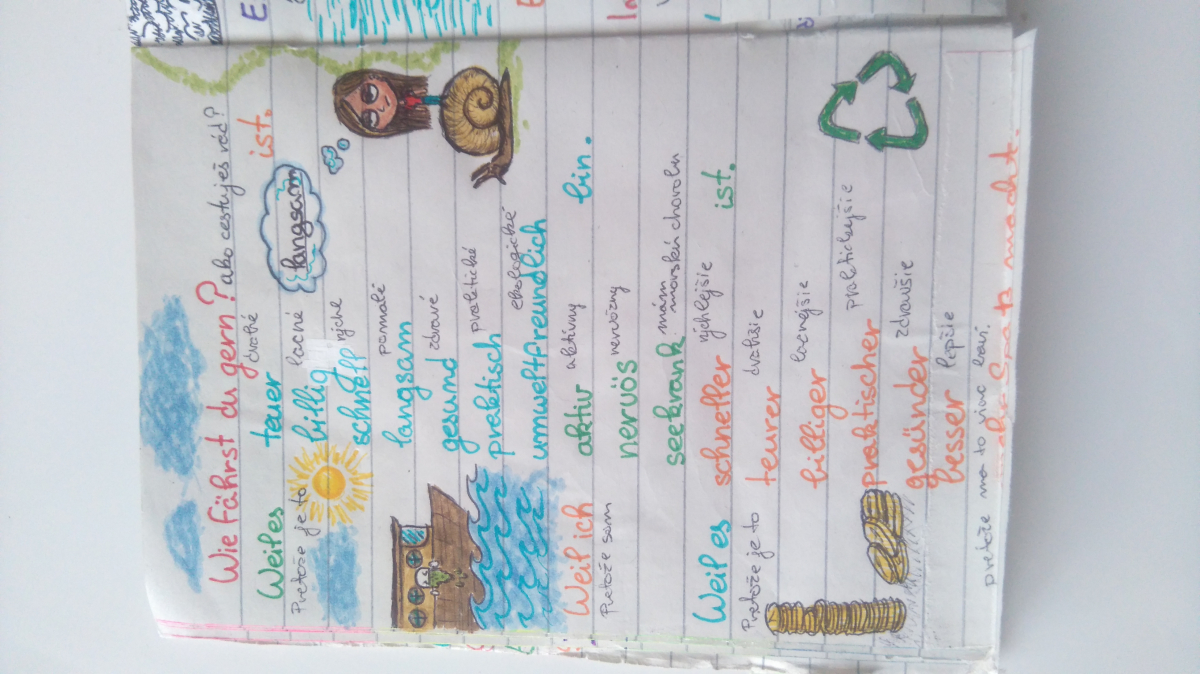 Wie fährst du gern? ako cestuješ rád?
Weil es teuer drahé ist.
Pretože je to billig lacné
schnell rýchle
langsam
langsam pomalé
gesund zdravé
praktisch praktické
umweltfreundlich ekologické
Weil ich aktiv aktívny bin.
Pretože som
nervös nervózny
seekrank mám morskú chorobu
Weil es schneller rýchlejšie ist.
Pretože je to teurer drahšie
billiger lacnejšie
praktischer praktickejšie
gesünder zdravšie
besser lepšie
mehr Spaß macht.
pretože ma to viac baví.